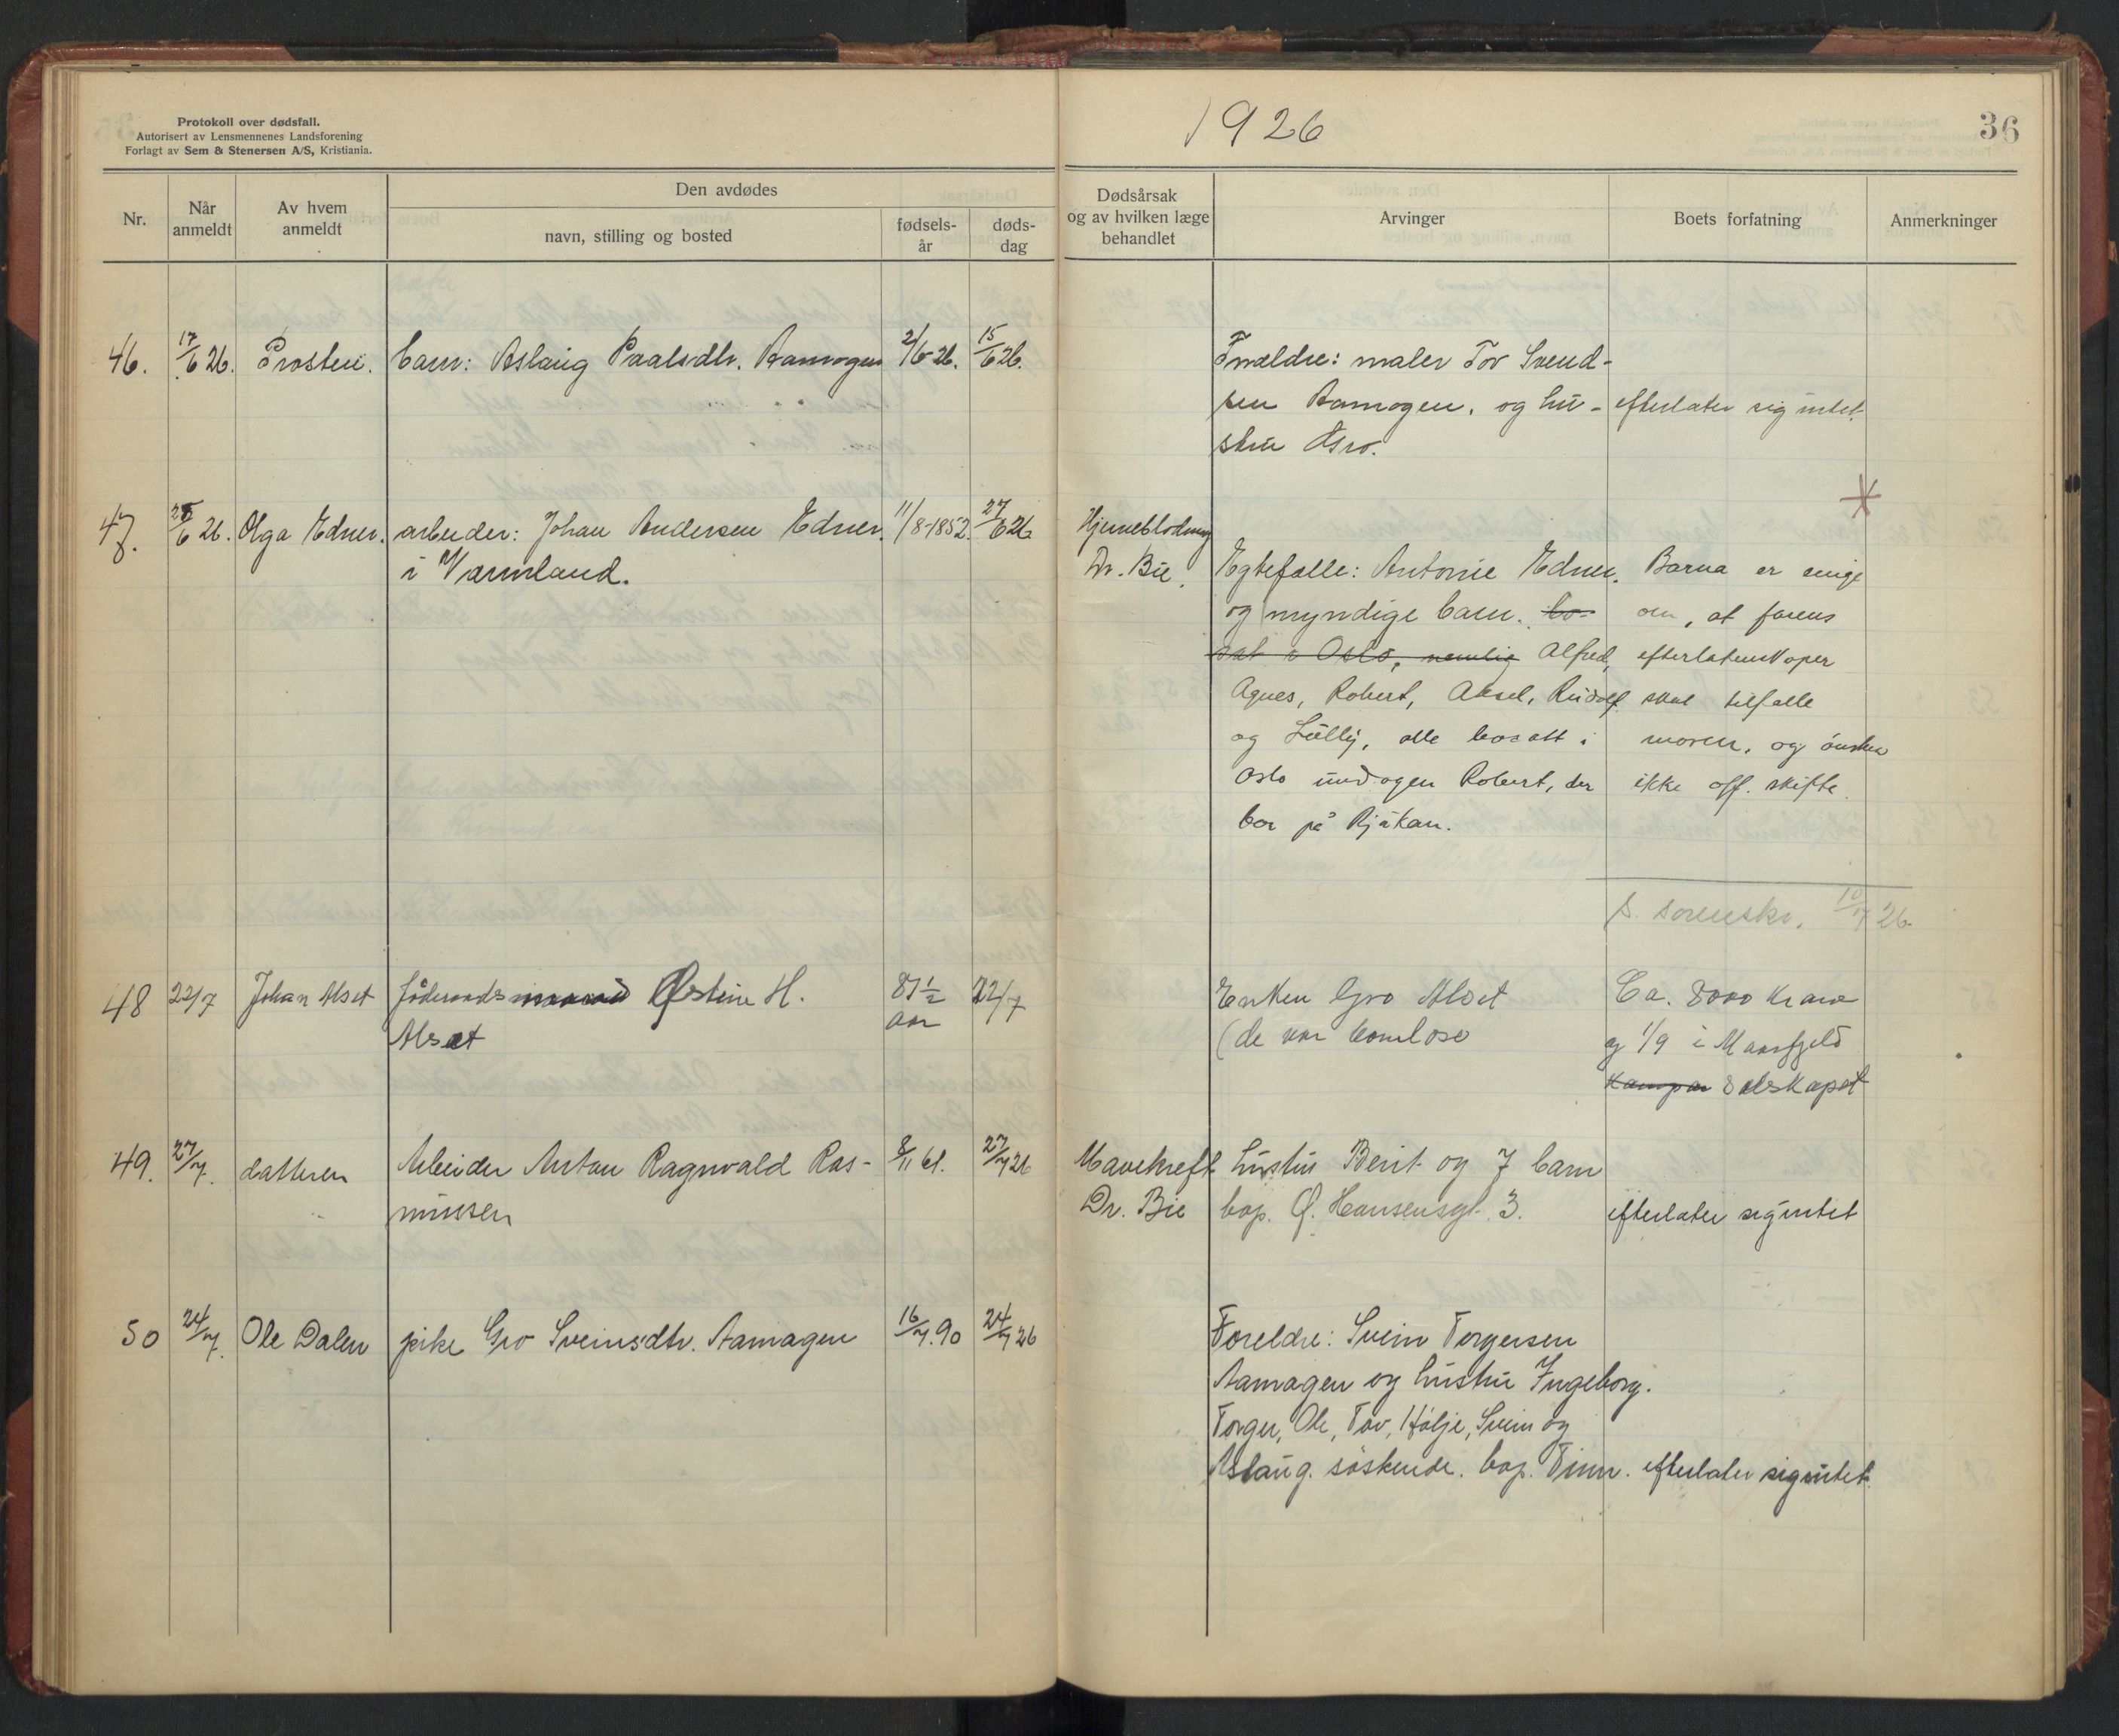 Protokoll over dødsfall.
Autorisert av Lensmennenes Landsforening
Forlagt av Sem & Stenersen A/S, Kristiania.
1926
36
Nr.
Når anmeldt
Av hvem anmeldt
Den avdødes
navn, stilling og bosted
fødsels-år
døds-dag
Dødsårsak og av hvilken læge behandlet
Arvinger
Boets forfatning
Anmerkninger
46. 17/6 26. Prosten. barn: Aslaug Paalsdtr. Aamogen 2/6 26. 15/6 26.
Forældre: maler Tov Svend-
sen Aamogen, og hu- efterlater sig intet.
stru Gro.
47. 6 26. Olga Edner. arbeider: Johan Andersen Edner. 11/8-1852. 27/6 26 Hjerneblødning
i Värmland. Dr. Bie. Egtefælle: Antonie Edner. Barna er enige
og myndige barn. bo- om, at farens
sat i Oslo, nemlig Alfred, efterlatenskaper
Agnes, Robert, Aksel, Rudolf skal tilfalle
og Lully, alle bosatt i moren, og ønsker
Oslo undtagen Robert, der ikke off. skifte.
bor på Rjukan.
S. sorenskr. 10/7 26.
48 22/7 Johan Alset Øistein H. 81 1/2 22/7 Enken Gro Alset Ca. 8000 kroner
Alset aar (de var barnløse og 1/9 i Maarfjeld
Kompan Selskapet
49. 27/7. datteren Arbeider Anton Ragnvald Ras- 8/11 61. 27/7 26 Mavekreft hustru Berit og 7 barn
mussen Dr. Bie bop. Ø. Hansensgt. 3. efterlater sig intet
50 24/7. Ole Dalen pike Gro Sveinsdtr. Aamagen 16/7.90 24/7 26 Foreldre: Svein Torgersen
Aamagen og hustru Ingeborg.
Torger, Ole, Tov, Hølje, Svein og
Aslaug. søskende. bop. Tinn. efterlater sig intet.